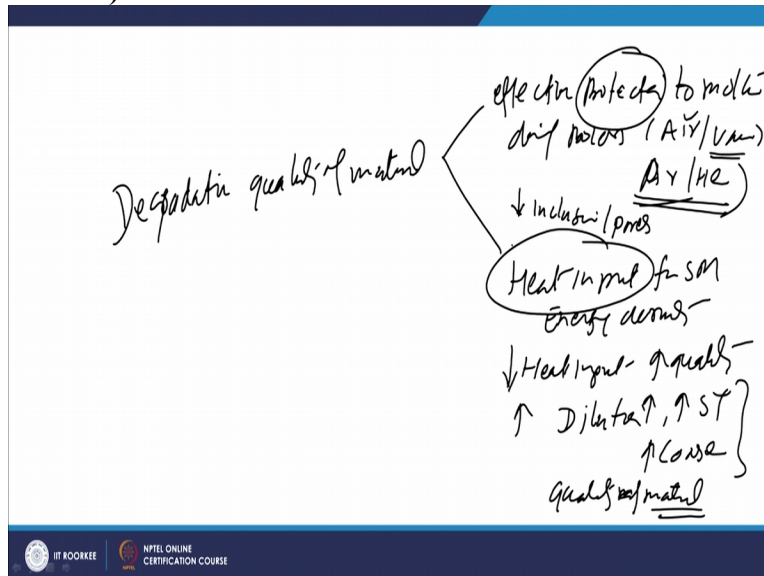 Degradation quality of material
effective Protection to molten
during (Air/Vacuum)
Ar/He)
↓ Inclusion/pores
Heat input for SM
Energy density
↓ Heat input ↑ quality
↑ Dilution ↑, ↑ ST
↑ Coarse
Quality of material
IIT ROORKEE
NPTEL ONLINE
CERTIFICATION COURSE